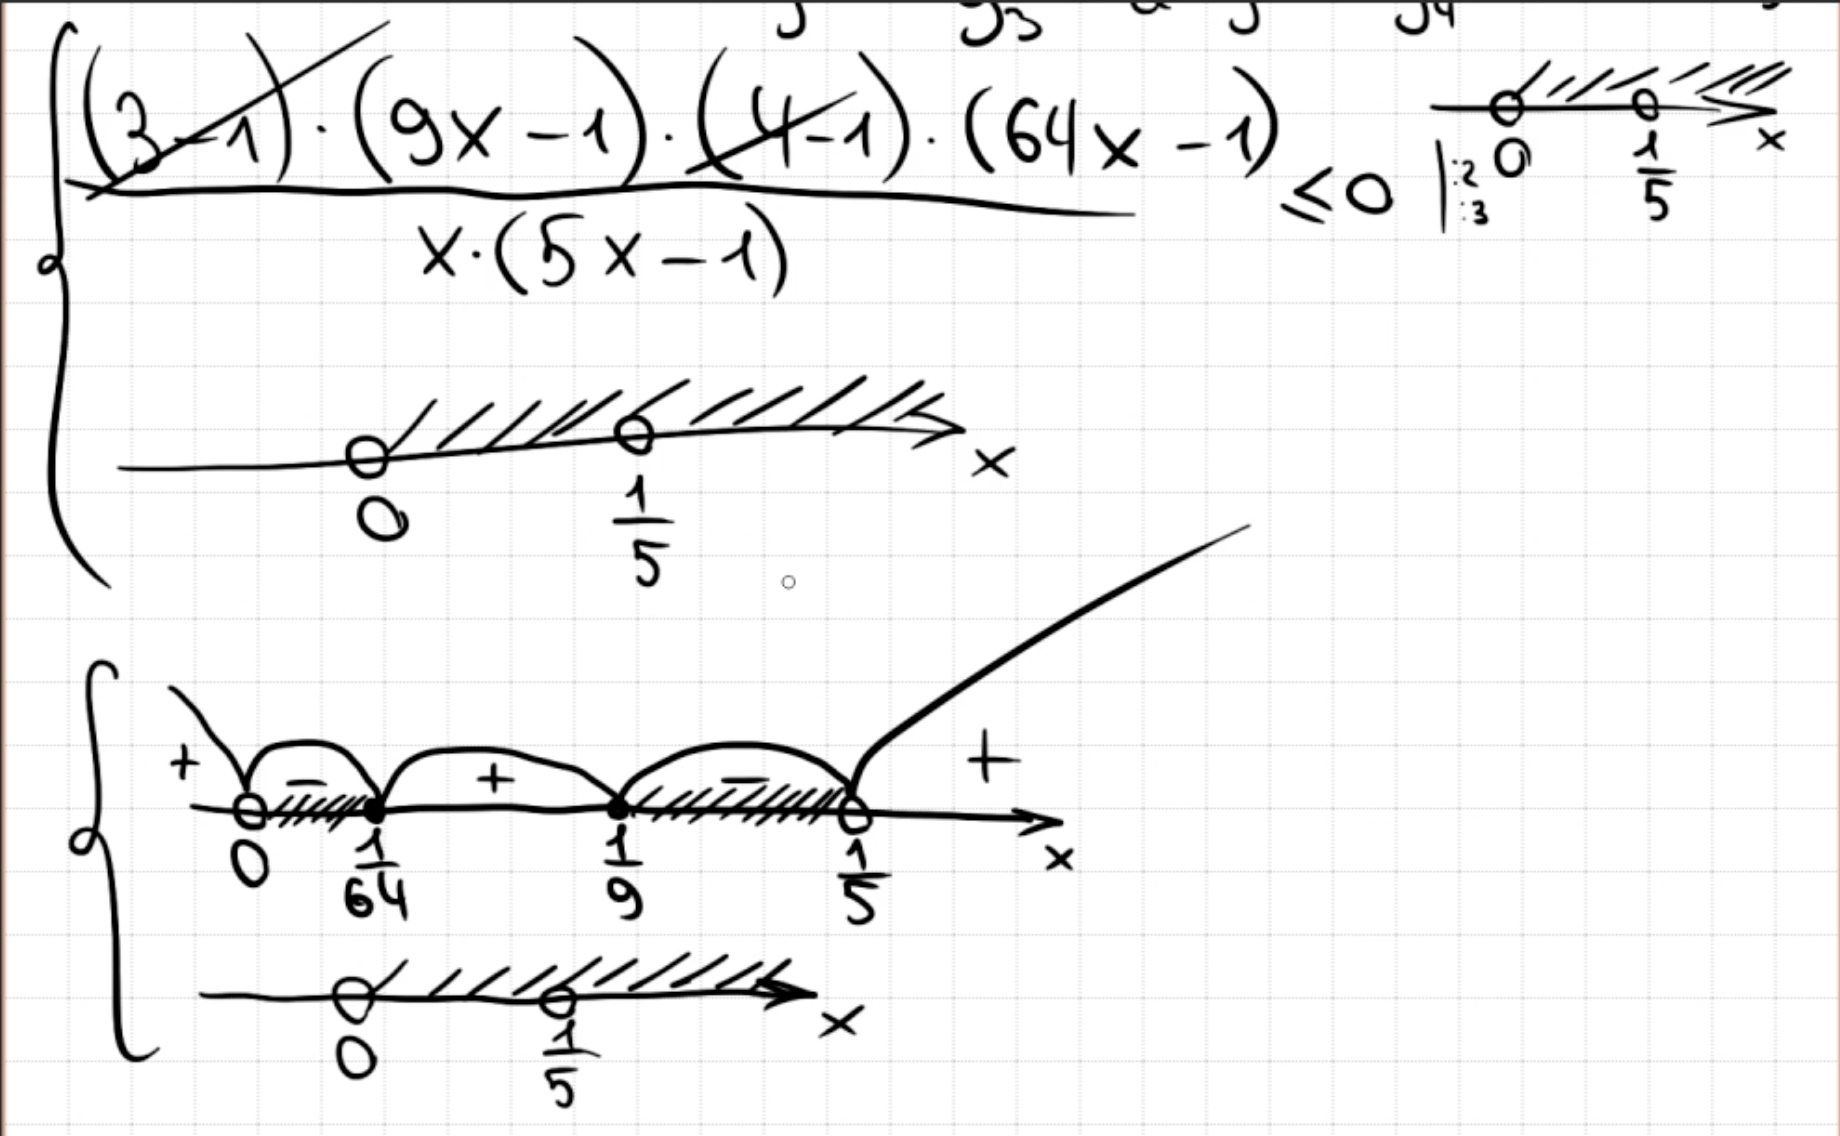 (3-1)·(9x-1)·(4-1)·(64x-1)
x·(5x-1)
≤0
:2
:3
0 1/5 x
0 1/5 x
+ - + - +
0 1/64 1/9 1/5 x
0 1/5 x